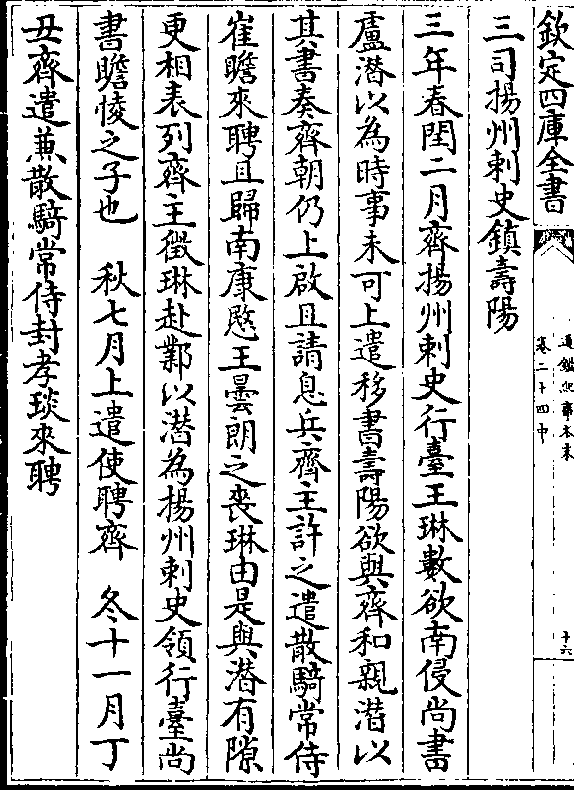 欽定四庫全書
通鑑紀事本末
卷二十四中
十六
三司揚州刺史鎮壽陽
三年春閏二月齊揚州刺史行臺王琳數欲南侵尚書
盧潛以為時事未可上遣移書壽陽欲與齊和親潛以
其書奏齊朝仍上啟且請息兵齊主許之遣散騎常侍
崔瞻來聘且歸南康愍王曇朗之喪琳由是與潛有隙
更相表列齊主徵琳赴鄴以潛為揚州刺史領行臺尚
書瞻㥄之子也 秋七月上遣使聘齊 冬十一月丁
丑齊遣兼散騎常侍封孝琰來聘